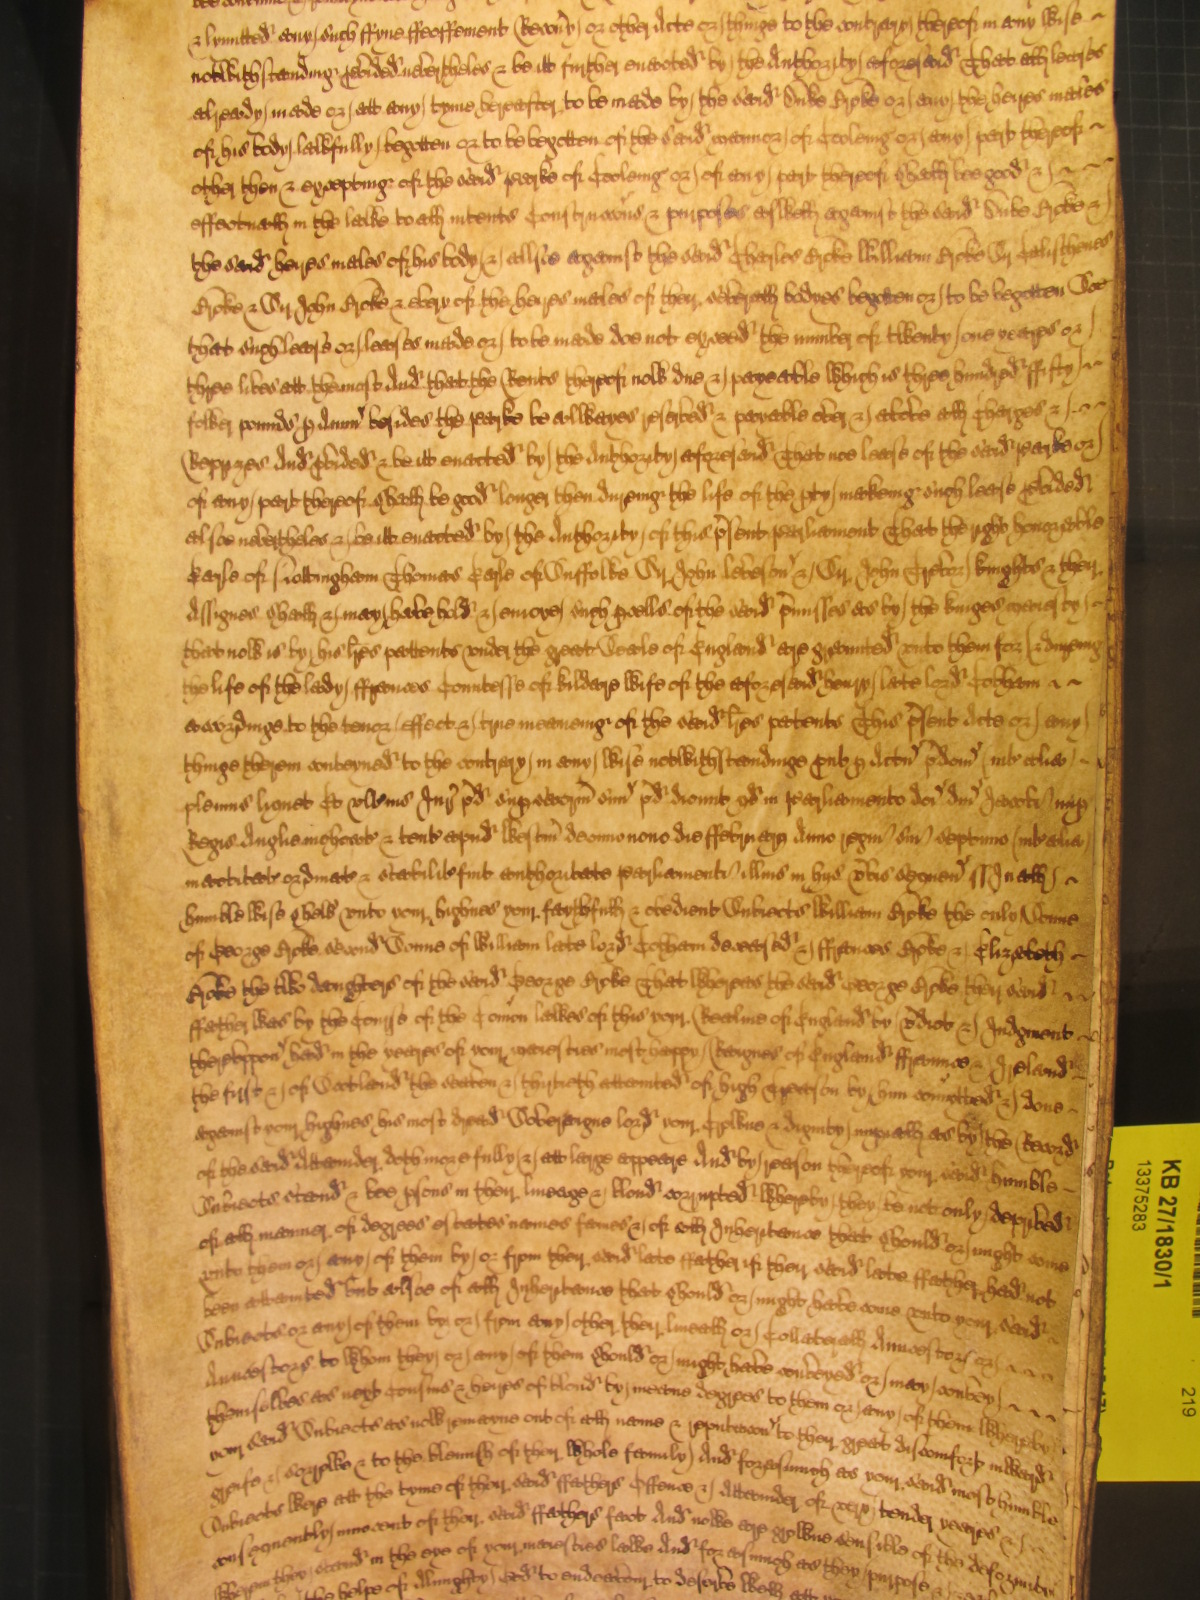 & lymitted any such ffyne ffeoffement Recovery or other Acte or thinge to the contrary thereof in any wise
notwithstanding Provided neverthelesse & be itt further enacted by the Authority aforesaid That all leases
already made or att any tyme hereafter to be made by the said Duke Brooke or any the heires males
of his body lawfully begotten or to be begotten of the said mannor of Cooleing or any part thereof
other then & excepting of the said parke of Cooleing or of any part thereof shall bee good &
effectuall in the lawe to all intents Construccions & purposes aswell against the said Duke Brooke &
the said heires males of his body & allsoe against the said Charles Brooke William Brooke Sir Calisthenes
Brooke & Sir John Brooke & every of the heires males of their severall bodyes begotten or to be begotten Soe
that such lease or leases made or to be made doe not exceed the number of twenty one yeares or
three lives att the most And that the Rents thereof now due & payeable which is three hundred ffifty
fower pounds p Annu besides the parke be allwayes reserved & payable over & above all Charges &
Reprizes And pvided & be itt enacted by the Authority aforesaid That noe lease of the said parke or
of any part thereof shall be good longer then dureing the life of the pty makeing such lease Provided
alsoe neverthelesse & be itt enacted by the Authority of this psent parliament That the right honorable
Earle of Nottingham Thomas Earle of Suffolke Sir John leveson & Sir John Trevor knights & their
Assignes shall & may have hold & enioye such pcells of the said pmisses as by the kinges maiesty
that now is by his lres pattents under the great Seale of England are graunted unto them for & dureing
the life of the lady ffrances Countesse of kildare wife of the aforesaid henry late lord Cobham
accordinge to the tenor effect & true meaneing of the said lres patents This psent Acte or any
thinge therein conteyned to the contrary in any wise notwithstandinge put p Actu pdcm inter alia
plenius liquet Et ulterius Jur pd sup sacrm suu pd dicunt qd in Parliamento dci dni Jacobi nup
Regis Anglie inchoat & tent apud Westm decimo nono die ffebruary Anno regni sui septimo inter alia
inactitat ordinat & stabilit fuit authoritate Parliamenti illius in hijs verbis sequen ss In all
humble wise shew unto your highnes your faythfull & obedient Subiects William Brooke the only Sonne
of George Brooke second Sonne of William late lord Cobham deceased & ffrances Brooke & Elizabeth
Brooke the two daughters of the said George Brooke That whereas the said George Brooke their said
ffather was by the Course of the Comon lawes of this your Realme of England by verdict & Judgment
thereuppon had in the yeares of your maiesties most happy Raignes of England ffraunce & Ireland
the first & of Scotland the seaven & thirtieth attainted of high Treason by him comitted & done
against your highnes his most dread Soveraigne lord your Crowne & dignity mynall as by the Record
of the said Attainder doth more fully & att large appeare And by reason thereof your said humble
Subiects stand & bee psons in their lineage & bloud corrupted whereby they be not only deprived
of all manner of degrees estates names fames & of all Inheritance that should or might come
unto them or any of them by or from their said late ffather if their said late ffather had not
been attainted but alsoe of all Inheritance that should or might have come unto your said
Subiects or any of them by or from any other their lineall or Collaterall Auncestors or
Auncestors to whom they or any of them should or might have conveyed or may convey
themselves as next Cousins & heires of bloud by meane degrees to them or any of them whereby
your said Subiects as now remayne out of all name & reputacon to their great discomfort inward
greife & sorrowe & to the blemish of their whole family And forasmuch as your said most humble
Subiects were att the tyme of their said ffathers Offence & Attainder of very tender yeares &
consequently innocent of their said ffathers fact And nowe are growne sensible of the deformity
wherein they stand in the eye of your maiesties lawe And forasmuch as they purpose &
the helpe of Almighty God to endeavour to deserve well
KB 27/1830/1
13375283
219